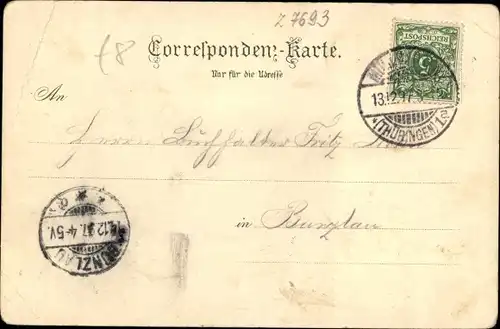 Z. 7693
£8
Correspondenz-Karte.
Nur für die Adresse
REICHSPOST
5
13.12.97.
*(THÜRINGEN)1*
An
Herrn Buchhalter Fritz
in Bunzlau
BUNZLAU
14.12.97. 4-5V.